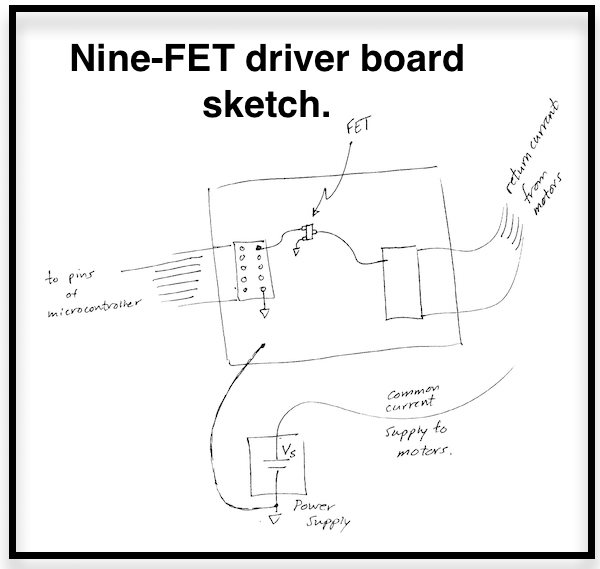 Nine-FET driver board
sketch.
FET
return current
from
motors
to pins
of
microcontroller
Common
current
Supply to
motors.
Vs
Power
Supply